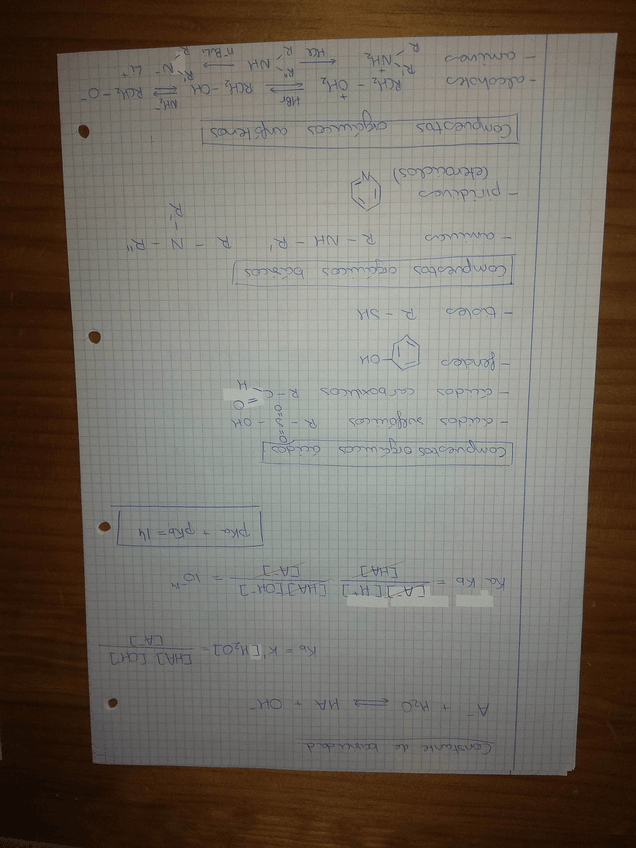 Constante de basicidad
A⁻ + H₂O ⇌ HA + OH⁻
Kb = K [H₂O] = [HA][OH⁻] / [A⁻]
Ka · Kb = [A⁻][H⁺] / [HA] · [HA][OH⁻] / [A⁻] = 10⁻¹⁴
pKa + pKb = 14
Compuestos orgánicos ácidos
- ácidos sulfónicos R - S - OH O O
- ácidos carboxílicos R - C O H
- fenoles OH
- tioles R - SH
Compuestos orgánicos básicos
- aminas R - NH - R' R - N - R'' R'
- piridinas N
(eterociclos)
Compuestos orgánicos anfóteros
- alcoholes RCH₂ - OH₂⁺ ⇌ HBr RCH₂ - OH ⇌ NH₂⁻ RCH₂ - O⁻
- aminas R R' NH₂⁺ ← HCl R R'' NH → n-BuLi R R' N⁻ Li⁺